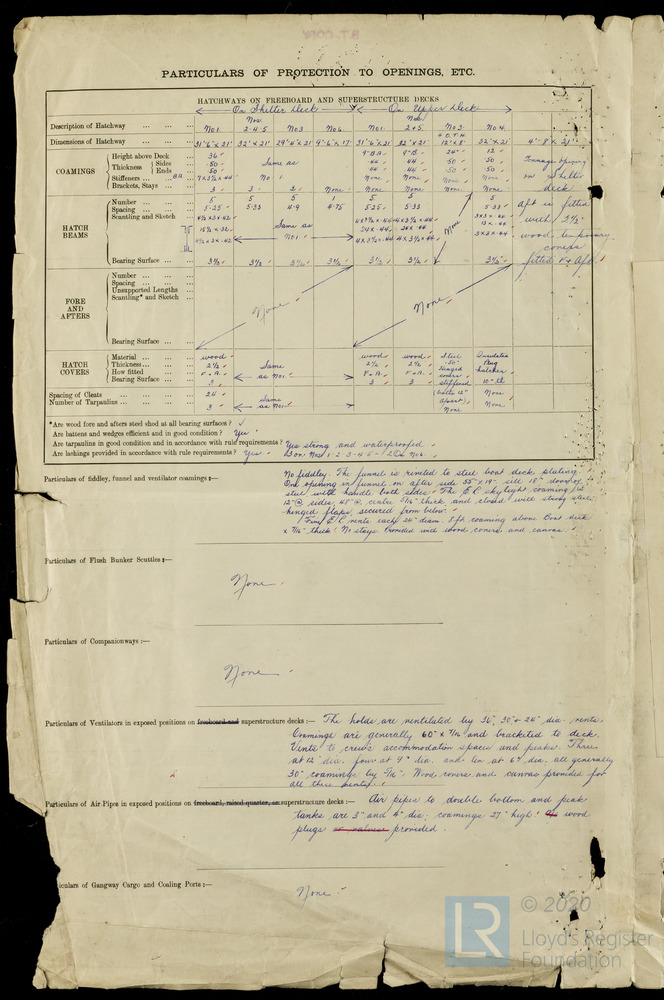 PARTICULARS OF PROTECTION TO OPENINGS, ETC.
HATCHWAYS ON FREEBOARD AND SUPERSTRUCTURE DECKS
On Shelter Deck On Upper Deck
Description of Hatchway No 1. Nos. 2-4-5 No 3 No 6. No 1. Nos. 2+5. No 3. No 4.
Dimensions of Hatchway 31'6"x21' 32'x21' 29'4"x21' 9'6"x17' 31'6"x21' 32'x21' 12'x8' 32'x21' 4'-8"x21'
COAMINGS
Height above Deck 36" 9"B.A. 9"B. 24" 12" Tonnage opening
Thickness Sides .50 Same as .44 .44 .50 .50 on Shelter
Ends .50 No 1 .44 .44 .50 .50 deck
Stiffeners ... BA 7x3½x44 None None None None
Brackets, Stays 3 3 2 None None None None None
HATCH BEAMS
Number 5 5 5 1 5 5 5 aft is fitted
Spacing 5.25 5.33 4.9 4.75 5.25 5.33 5.33 with 2½"
Scantling and Sketch Same as No 1. None wood temporary
covers
Bearing Surface 3½ 3½ 3½ 3½ 3½ 3½ 3½ fitted F + Aft
FORE AND AFTERS
Number
Spacing
Unsupported Lengths
Scantling* and Sketch None None
Bearing Surface
HATCH COVERS
Material wood wood wood Steel Insulated
Thickness 2½ Same 2½ 2½ .50" Plug
How fitted F+A. as No 1. F+A. F+A. hinged covers hatches
Bearing Surface 3 3 3 stiffened 10" th
Spacing of Cleats 24 Same (bolts 12" None
Number of Tarpaulins 3 as No 1 apart) None None
*Are wood fore and afters steel shod at all bearing surfaces? ✓
Are battens and wedges efficient and in good condition? Yes
Are tarpaulins in good condition and in accordance with rule requirements? Yes strong and waterproofed
Are lashings provided in accordance with rule requirements? Yes. 3 on Nos 1-2-3-4-5 - 2 On No 6.
Particulars of fiddley, funnel and ventilator coamings:— No fiddley. The funnel is riveted to steel boat deck plating.
One opening in funnel on after side 55"x19" sill 18" door of
steel with handle both sides. The E.R skylight coaming is
12" @ sides, 48" @ centre 5/16" thick and closed with strong steel
hinged flaps, secured from below.
Four E/R vents each 24" diam. 8ft coaming above Boat deck
x 7/16" thick. No stays. Provided with wood covers and canvas.
Particulars of Flush Bunker Scuttles:—
None
Particulars of Companionways:—
None
Particulars of Ventilators in exposed positions on freeboard and superstructure decks:— The holds are ventilated by 36", 30" + 24" dia. vents.
Coamings are generally 60" x 7/16 and bracketed to deck.
Vents to crew's accommodation spaces and peaks. Three
at 12" dia. four at 9" dia. and ten at 6" dia. all generally
30" coamings by 5/16". Wood covers and canvas provided for
all these vents.
Particulars of Air Pipes in exposed positions on freeboard, raised quarter, or superstructure decks:— Air pipes to double bottom and peak
tanks are 3" and 4" dia; coamings 27" high. wood
plugs or valves provided.
iculars of Gangway Cargo and Coaling Ports:—
None
© 2020
LR Lloyd's Register
Foundation